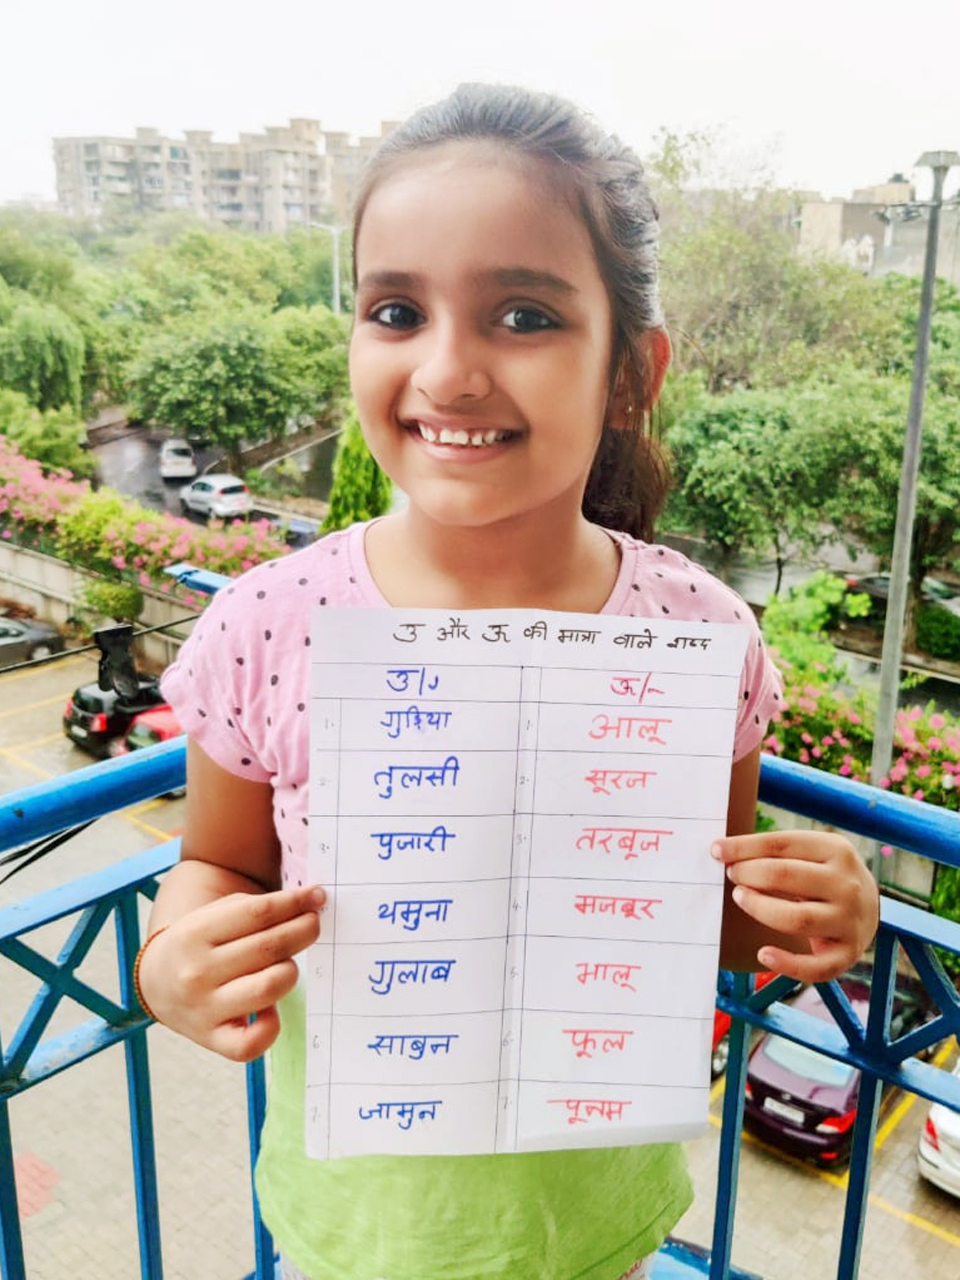 उ और ऊ की मात्रा वाले शब्द
उ/ु ऊ/ू
1. गुड़िया 1. आलू
2. तुलसी 2. सूरज
3. पुजारी 3. तरबूज
यमुना 4. मजबूर
5. गुलाब 5. भालू
6. साबुन 6. फूल
7. जामुन 7. पूनम